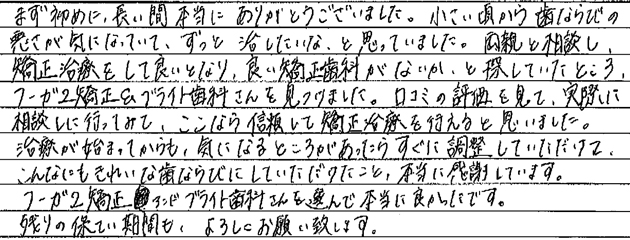 まず初めに、長い間本当にありがとうございました。小さい頃から歯ならびの
悪さが気になっていて、ずっと治したいな、と思っていました。両親と相談し、
矯正治療をして良いとなり、良い矯正歯科がないか、と探していたところ、
フーガ2矯正&ブライト歯科さんを見つけました。口コミの評価を見て、実際に
相談しに行ってみて、ここなら信頼して矯正治療を行えると思いました。
治療が始まってからも、気になるところがあったらすぐに調整していただけて、
こんなにもきれいな歯ならびにしていただけたこと、本当に感謝しています。
フーガ2矯正アンドブライト歯科さんを選んで本当に良かったです。
残りの保てい期間も、よろしくお願い致します。